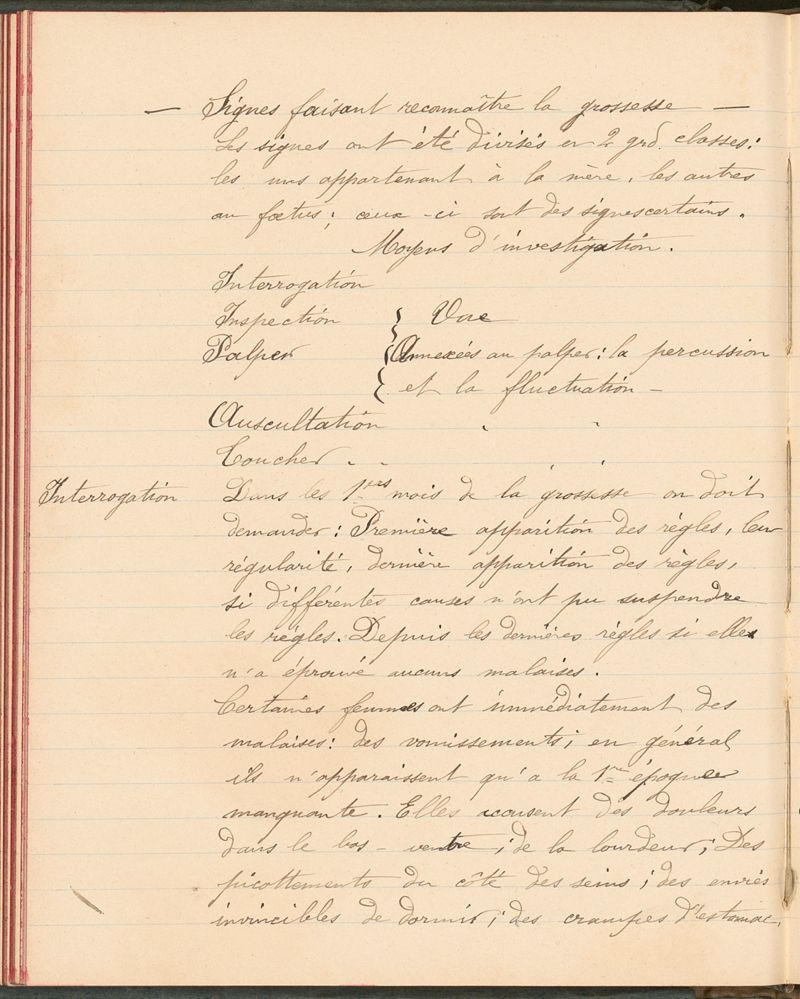 — Signes faisant reconnaître la grossesse —
Les signes ont été divisés en 2 grd. classes:
les uns appartenant à la mère, les autres
au fœtus; ceux-ci sont des signes certains.
Moyens d'investigation.
Interrogation
Inspection } Vue
Palper { Annexées au palper: la percussion
{ et la fluctuation —
Auscultation " "
Toucher " " " "
Interrogation Dans les 1ers mois de la grossesse on doit
demander: Première apparition des règles, leur
régularité, dernière apparition des règles,
si différentes causes n'ont pu suspendre
les règles. Depuis les dernières règles si elle
n'a éprouvé aucuns malaises.
Certaines femmes ont immédiatement des
malaises: des vomissements; en général
ils n'apparaissent qu'a la 1re époque
manquante. Elles accusent des douleurs
dans le bas-ventre; de la lourdeur; Des
picottements du côté des seins; des envies
invincibles de dormir; des crampes d'estomac.